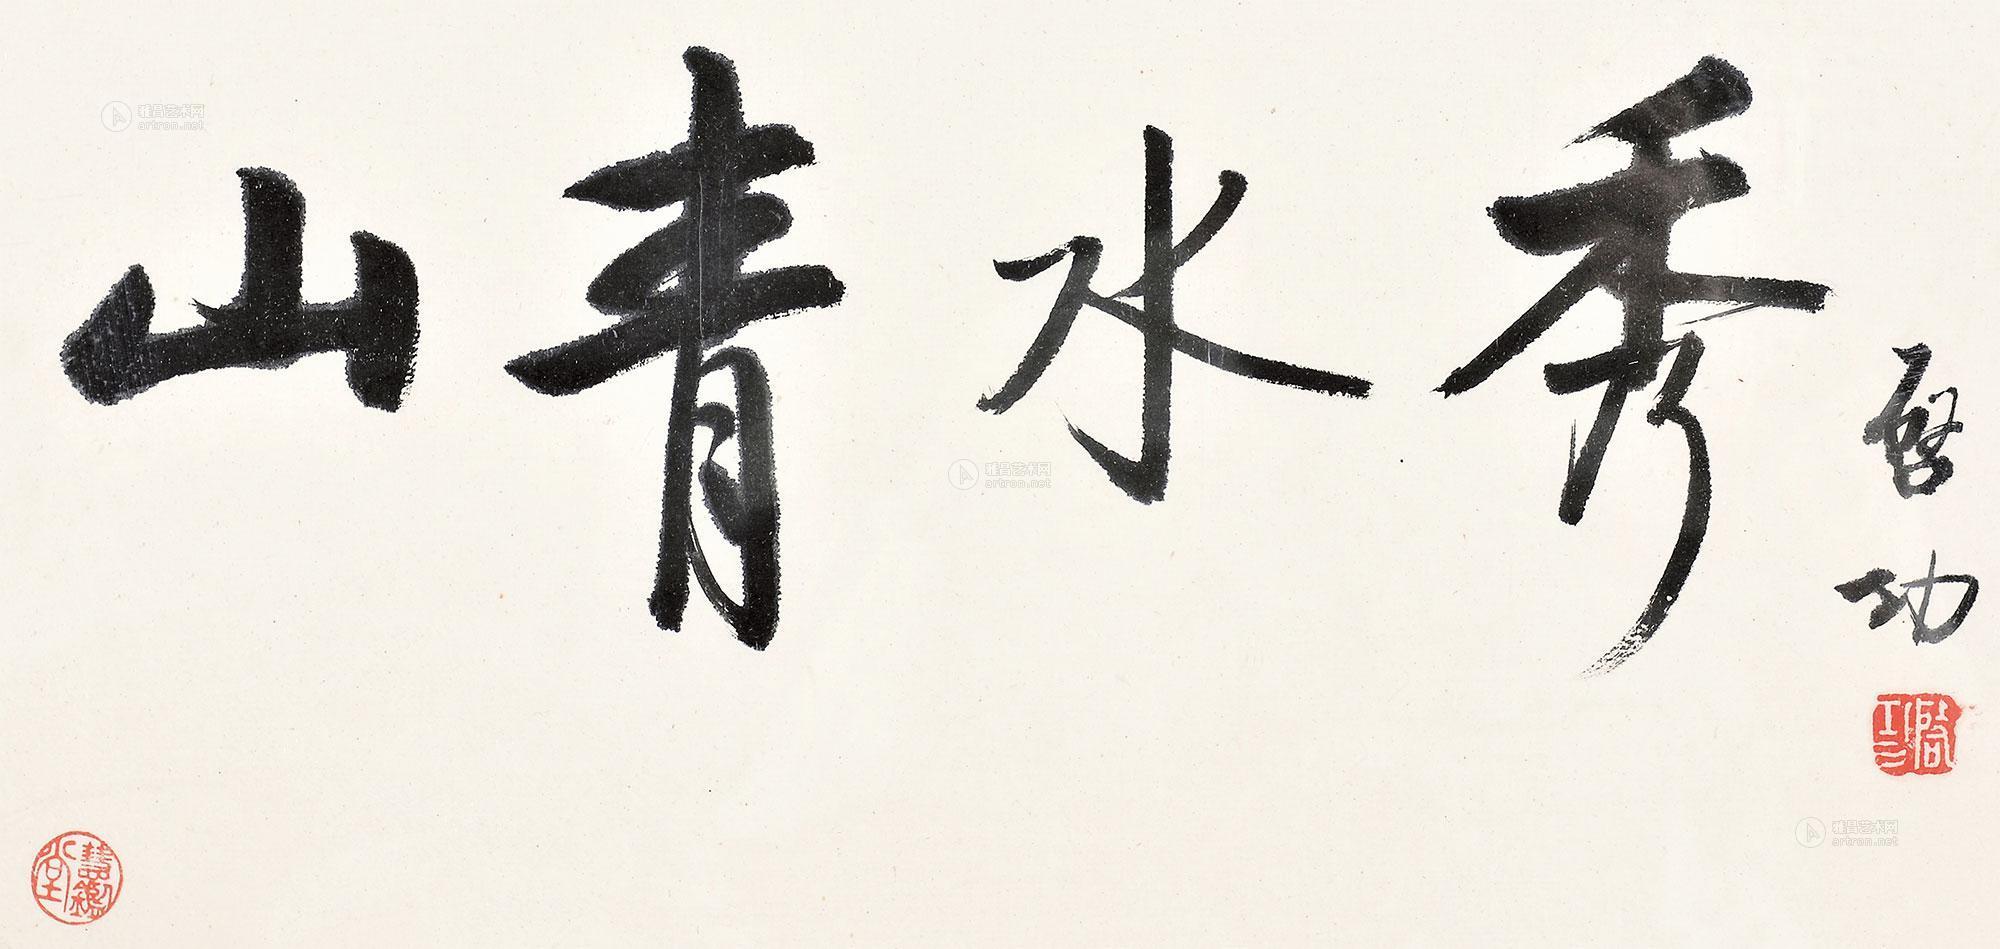 山青水秀
启功
启功
雅昌艺术网
artron.net
雅昌艺术网
artron.net
雅昌艺术网
artron.net